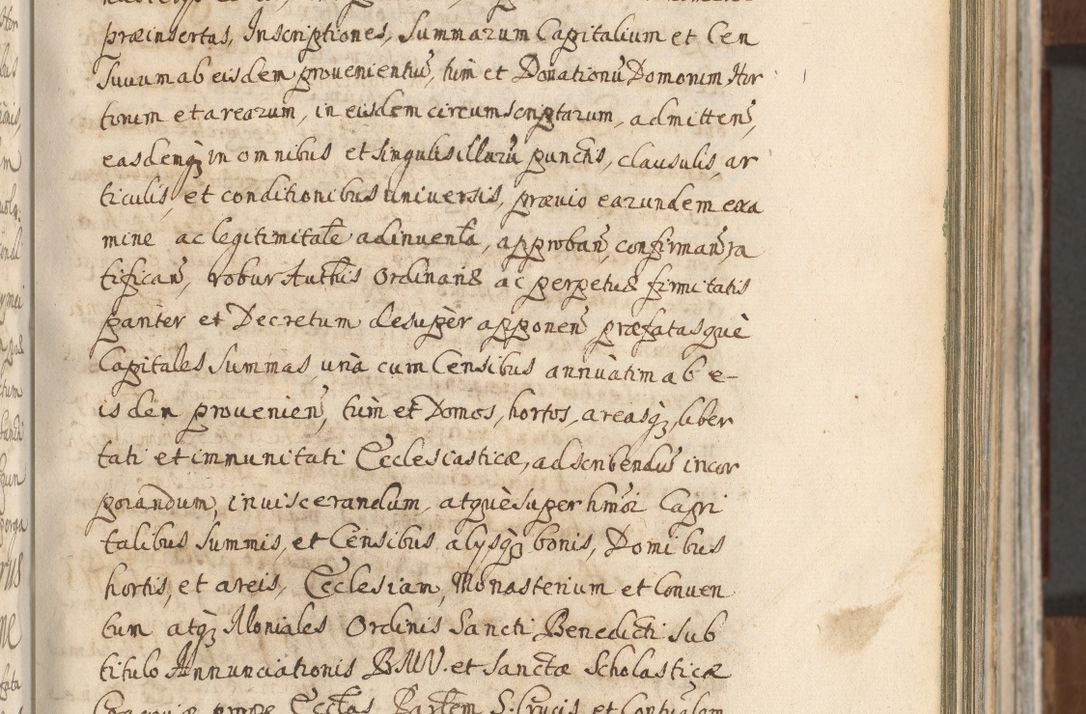 præinsertas, Inscriptiones, Summarum Capitalium et Cen
suum ab eisdem provenientiũ, tum et Donationũ Domorum Hor
torum et arearum, in eisdem circumscriptarum, admitten̄,
easdemqȝ in omnibus et singulis illarũ punctis, clausulis, ar
ticulis, et conditionibus universis, prævio earundem exa
mine ac legitimitate adinventa, approban̄, confirman̄, ra
tifican̄, robur Auth̄is Ordinariæ ac perpetuæ firmitatis
pariter et Decretum desupèr apponen̄ præfatasquè
Capitales Summas, unà cum Censibus annuatim ab e-
isdem provenien̄, tum et Domos, hortos, areasqȝ, liber
tati et immunitati Ecclesiasticæ, adscribendũ incor
porandum, inviscerandum, atquè super hm̄oi Capi
talibus Summis, et Censibus, alysqȝ bonis, Domibus
hortis, et areis, Ecclesiam, Monasterium et Conven
tum atqȝ Moniales Ordinis Sancti Benedicti sub
titulo Annunciationis BMV. et Sanctæ Scholasticæ
prope Eccl̄as Par̄lem S. Crucis et Contualem